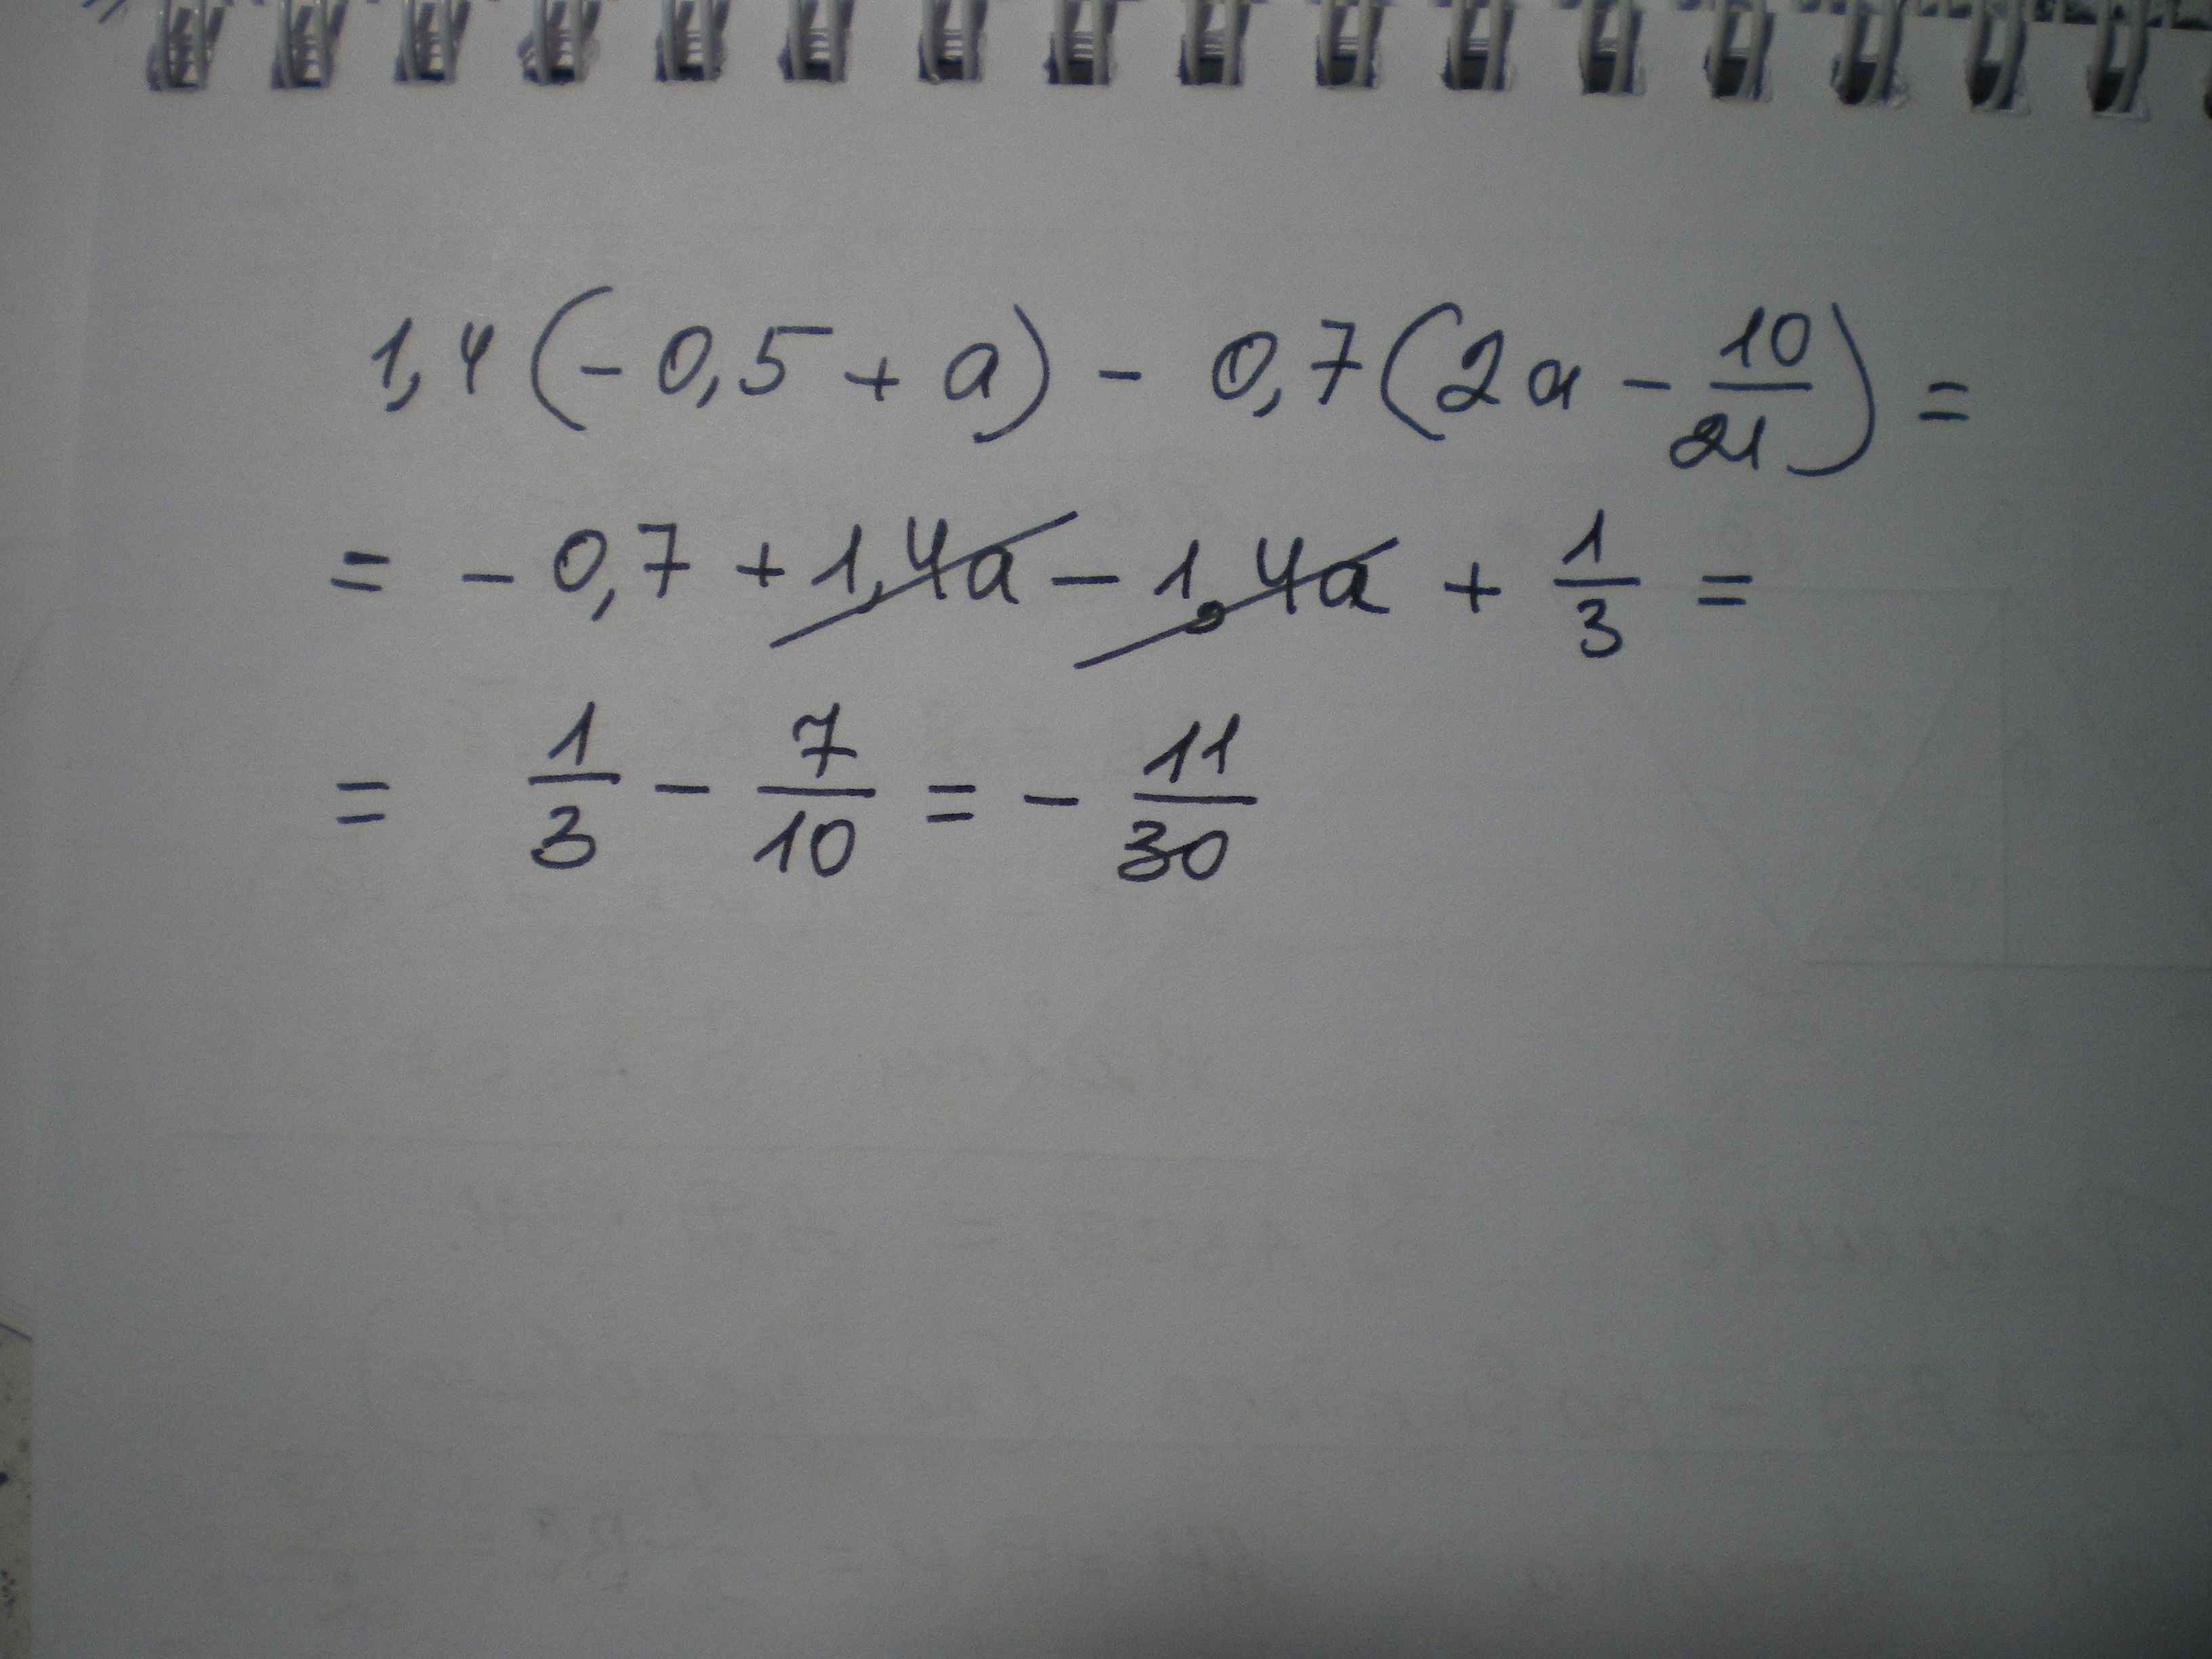 1,4(-0,5 + a) - 0,7(2a - 10/21) =
= - 0,7 + 1,4a - 1,4a + 1/3 =
= 1/3 - 7/10 = - 11/30